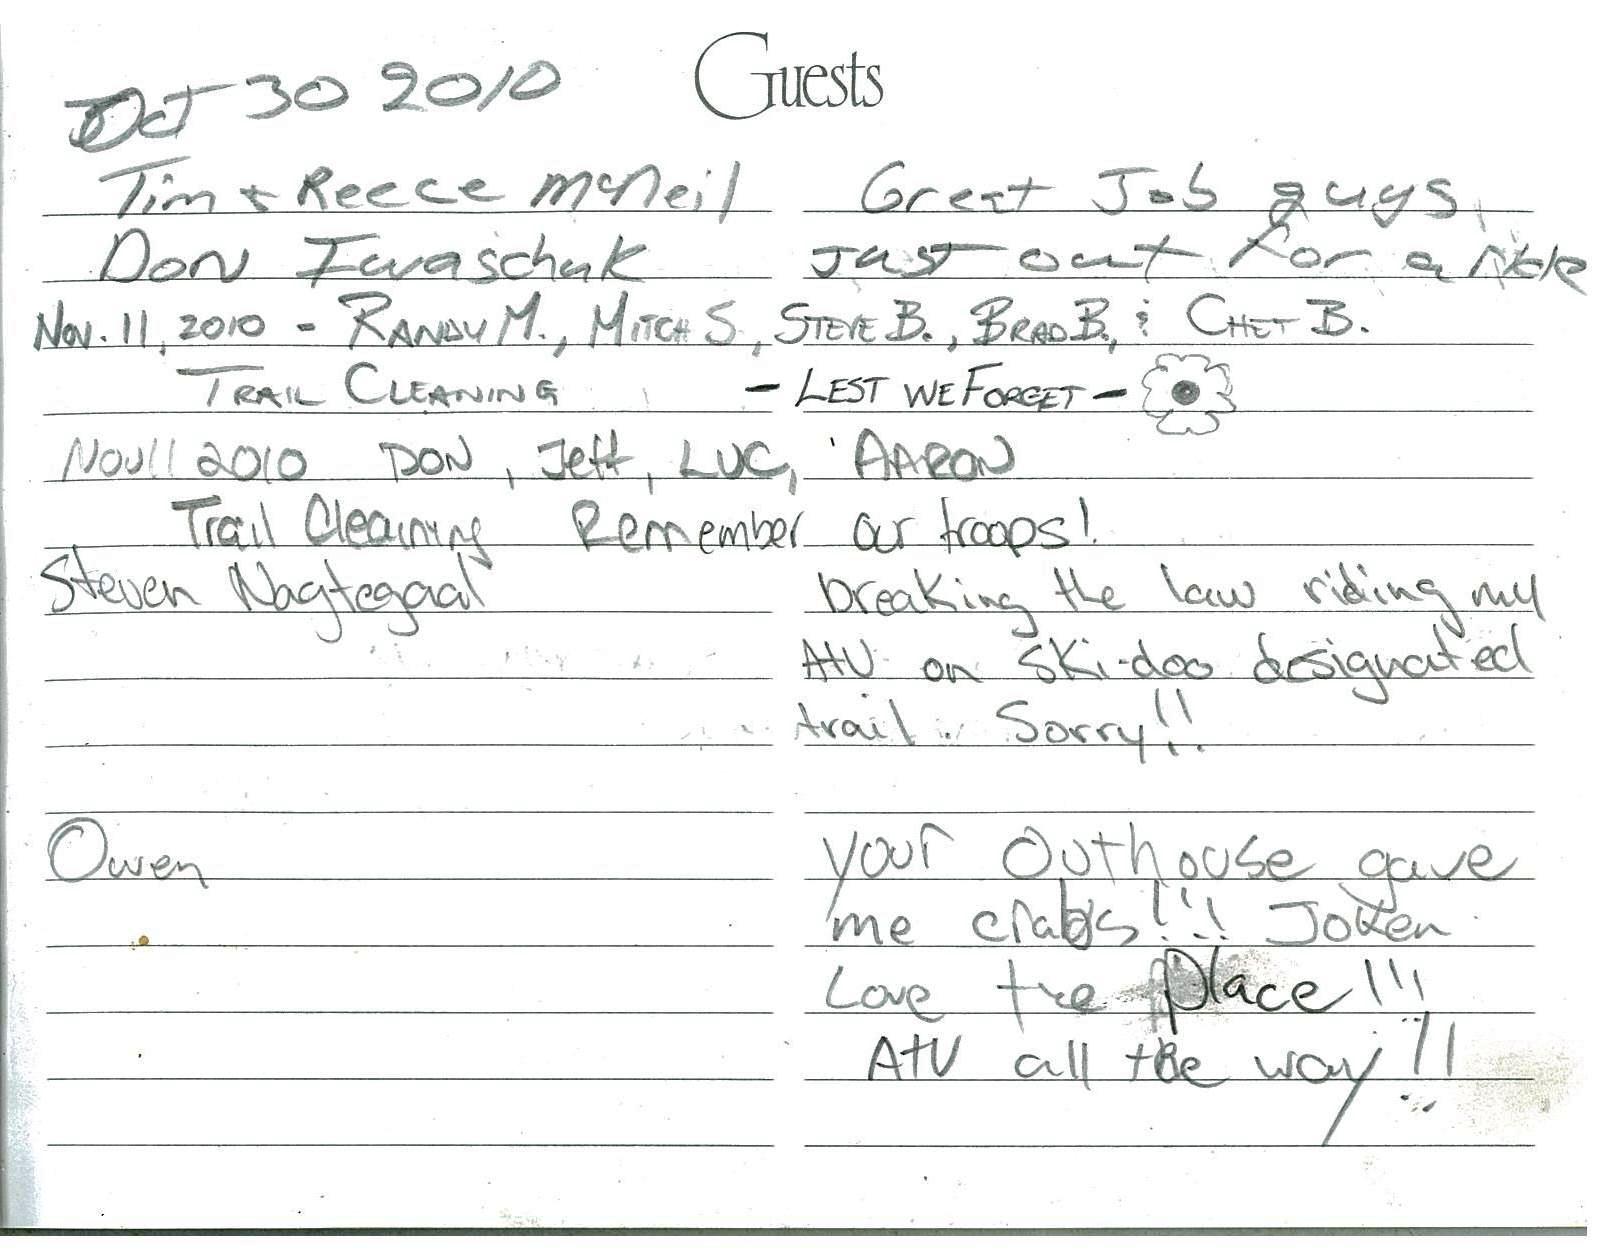 Guests
Oct 30 2010
Tim + Reece McNeil Great Job guys
Don Iwaschuk Just out for a ride
Nov. 11, 2010 - RANDY M., MITCH S., STEVE B., BRAD B., & CHET B.
TRAIL CLEANING - LEST WE FORGET -
Nov 11 2010 DON, Jeff, LUC, AARON
Trail Cleaning Remember our troops!
Steven Nagtegaal breaking the law riding my
AtV on Ski-doo designated
trail. Sorry!!
Owen your Outhouse gave
me crabs!!! Joken
Love the place!!!
AtV all the way!!